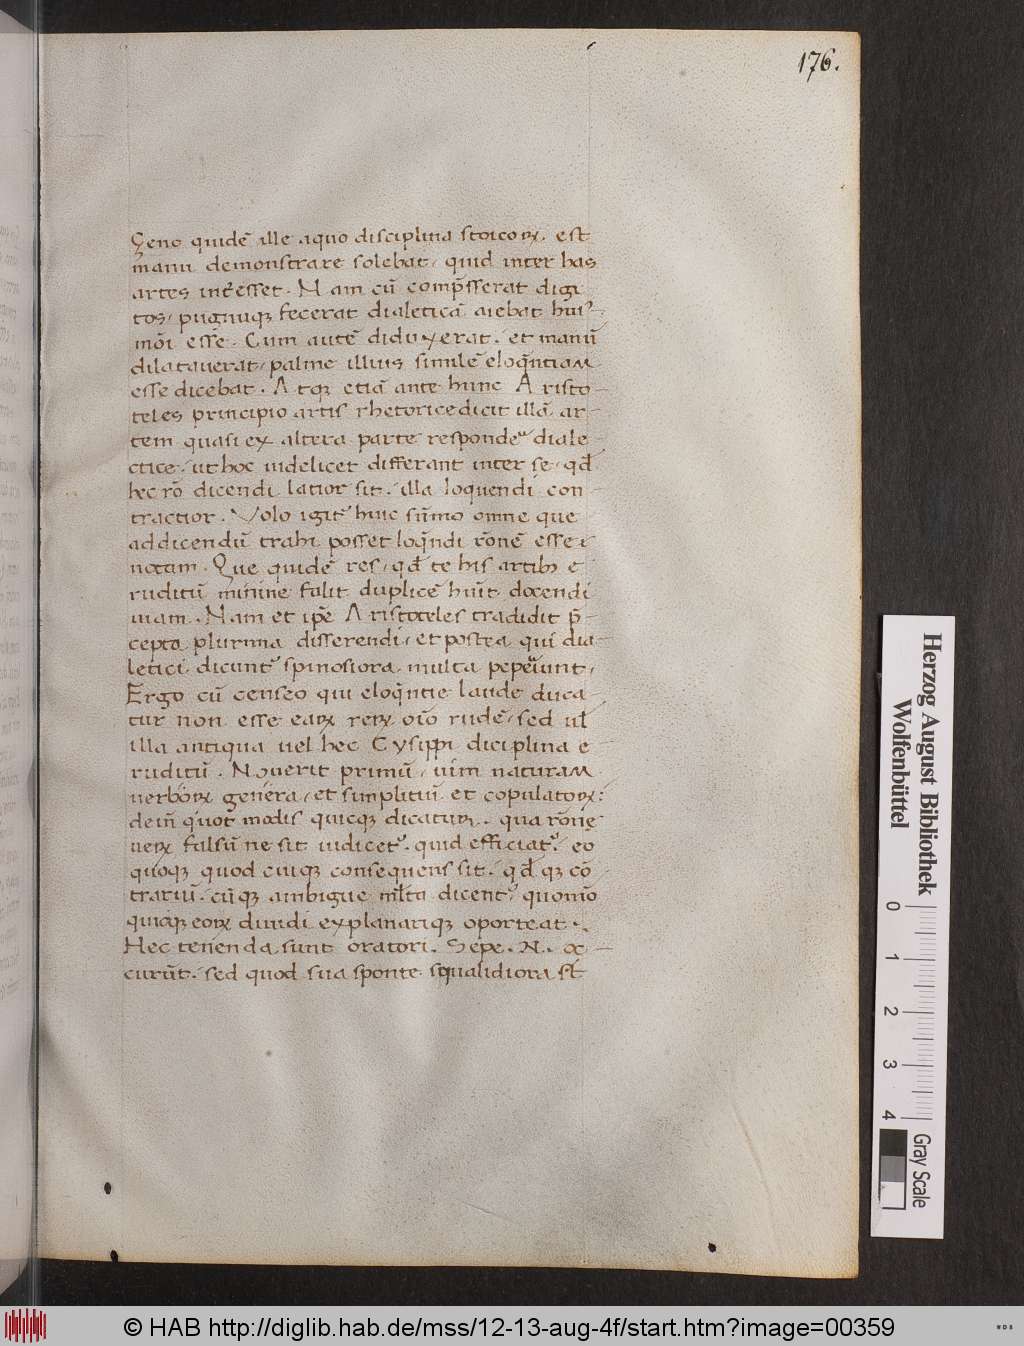 176.
Zeno quidē ille aquo disciplina stoicoꝝ. est
manu demonstrare solebat, quid inter has
artes intēesset. Nam cū comp̄sserat digi
tos, pugnuqꝫ fecerat dialeticā aiebat huiꝰ-
mōi esse. Cum autē diduxerat. et manū
dilatauerat, palme illius similē eloq̄ntiam
esse dicebat. Atqꝫ etiā ante hunc Aristo-
teles principio artis rhetorice dicit illā ar-
tem quasi ex altera parte respondeͬ diale-
ctice, ut hoc uidelicet differant inter se, qđ
hec rō dicendi latior sit, illa loquendi con-
tractior. Volo igit᷑ huic sūmo omne que
ad dicendū trahi posset loq̄ndi rōnē esse
notam. Que quidē res, qđ te his artibꝫ e-
ruditū minime falit duplicē huīt docendi
uiam. Nam et ip̄e Aristoteles tradidit p̄-
cepta plurima disserendi, et postea qui dia-
letici dicunt᷑ spinosiora multa pepeͬiunt,
Ergo cū censeo qui eloq̄ntie laude duca-
tur non esse eaꝝ reꝝ oīo rudē, sed uł
illa antiqua uel hec Cysippi diciplina e-
ruditū. Nouerit primū, uim naturam
uerboꝝ genera, et simplitiū et copulatoꝝ:
dein̄ quot modis quicqꝫ dicatur. qua rōne
ueꝝ falsū ne sit iudicet᷑. quid efficiat᷑. eo
quoqꝫ quod cuiqꝫ consequens sit. qđqꝫ cō
trariū. cūqꝫ ambigue ml̄ta dicent᷑, quomō
quicqꝫ eoꝝ diuidi explanariqꝫ oporteat.
Hec tenenda sunt oratori. Sepe .N. oc-
curūt. sed quod sua sponte squalidiora st̄
Herzog August Bibliothek
Wolfenbüttel
0 1 2 3 4
Gray Scale
© HAB http://diglib.hab.de/mss/12-13-aug-4f/start.htm?image=00359